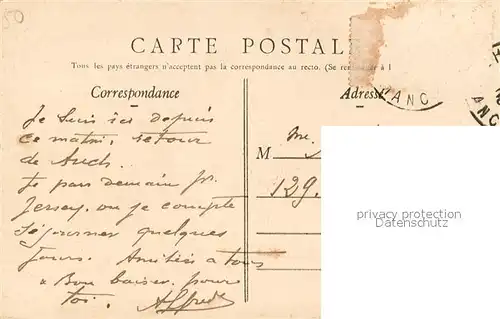 50
CARTE POSTAL
Tous les pays étrangers n'acceptent pas la correspondance au recto. (Se ren
Correspondance
Adresse
ANC
ANC
Je suis ici depuis
ce matin, retour
de Auch.
Je pars demain pr.
Jersey, ou je compte
séjourner quelques
jours. Amitiés à tous
& Bon baiser pour
toi. Alfred
M
129.
privacy protection
Datenschutz